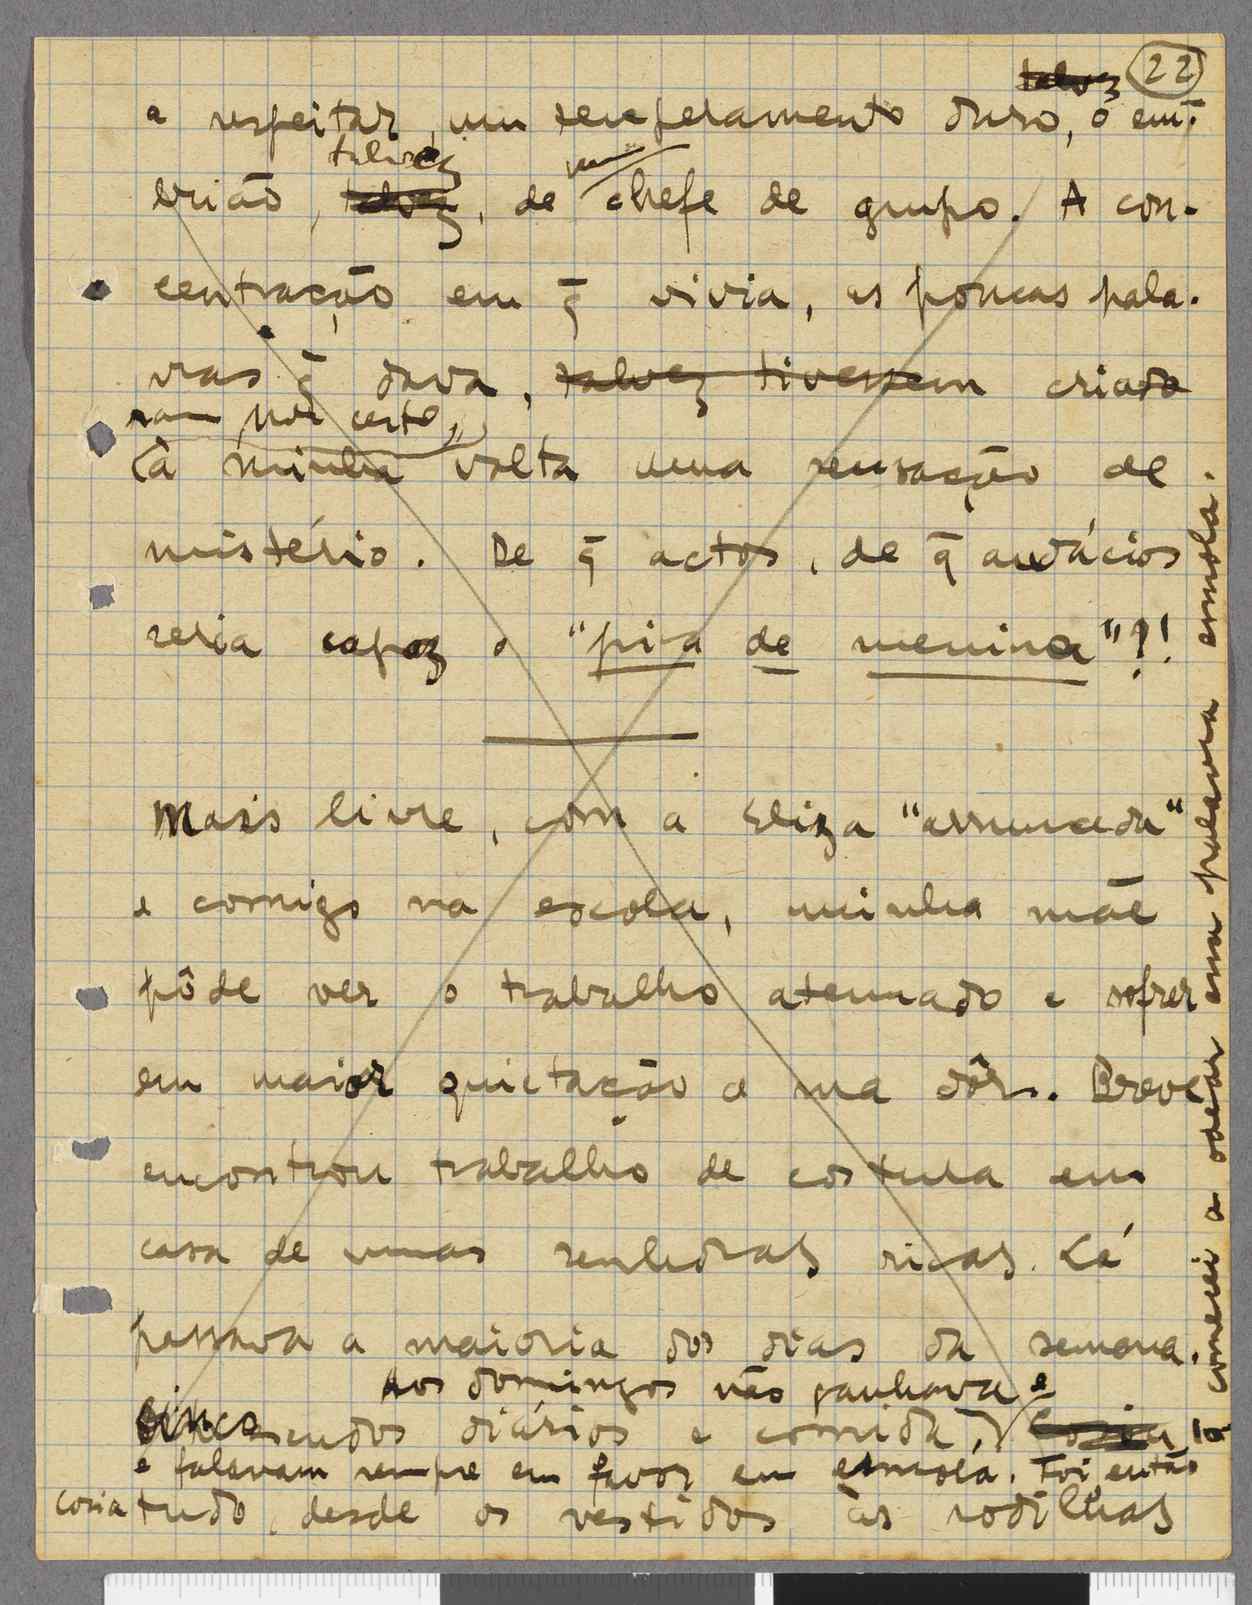 22
talvez
e respeitar, um temperamento duro, o em-
talvez
um
brião, talvez, de chefe de grupo. A con-
centração em q̄ vivia, as poucas pala-
vras q̄ dava, talvez tivessem criado
ram por certo,
à minha volta uma sensação de
mistério. De q̄ actos, de q̄ audácios
seria capaz o "pi-a de menina"?!
Mais livre, com a Eliza "arrumada"
e comigo na escola, minha mãe
pôde ver o trabalho atenuado e sofrer
em maior quietação a sua dôr. Breve
encontrou trabalho de costura em
casa de umas senhoras ricas. Lá
passava a maioria dos dias da semana.
Aos domingos não ganhava e
Cinco escudos diários e comida. Cosia
e falavam sempre em favor em esmola. Foi então
cosia tudo, desde os vestidos às rodilhas
q̄ comecei a odear essa palavra esmola.